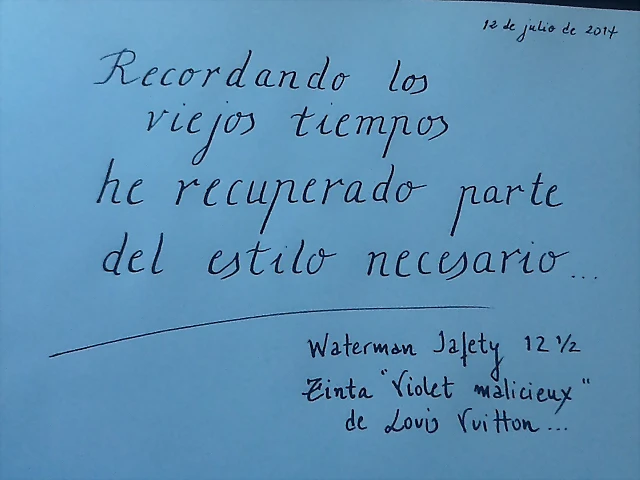 12 de julio de 2014
Recordando los
viejos tiempos
he recuperado parte
del estilo necesario...
Waterman Safety 12 1/2
Tinta "Violet malicieux"
de Louis Vuitton...